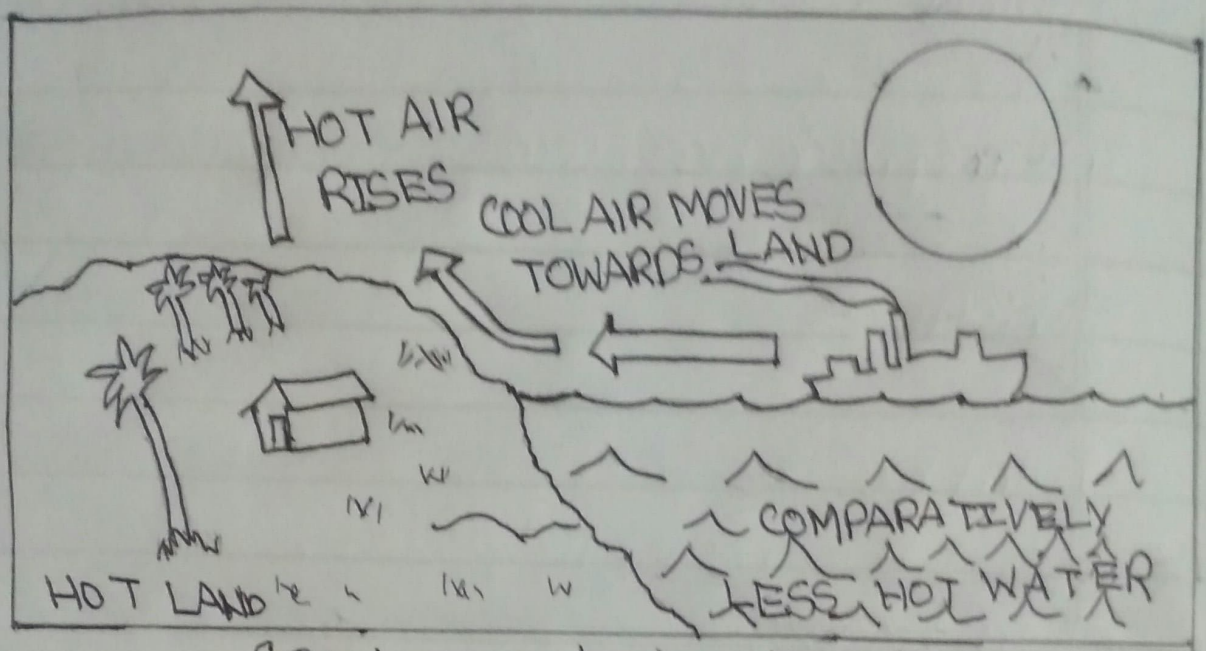 HOT AIR
RISES
COOL AIR MOVES
TOWARDS LAND
COMPARATIVELY
LESS HOT WATER
HOT LAND